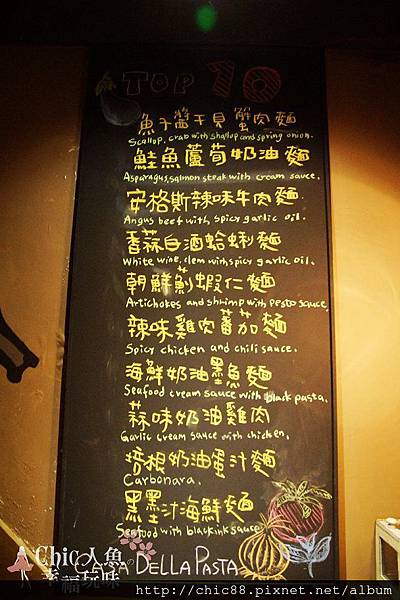 TOP 10
魚子醬干貝蟹肉麵
Scallop, crab with shallop and spring onion.
鮭魚蘆荀奶油麵
Asparagus, salmon steak with cream sauce.
安格斯辣味牛肉麵
Angus beef with spicy garlic oil.
香蒜白酒蛤蜊麵
White wine, clem with spicy garlic oil.
朝鮮薊蝦仁麵
Artichokes and shrimp with pesto sauce.
辣味雞肉蕃茄麵
Spicy chicken and chili sauce.
海鮮奶油墨魚麵
Seafood cream sauce with black pasta.
蒜味奶油雞肉
Garlic cream sauce with chicken.
培根奶油蛋汁麵
Carbonara.
墨墨汁海鮮麵
Seafood with black ink sauce
DELLA PASTA
Chic人魚
幸福玩味
http://chic88.pixnet.net/album